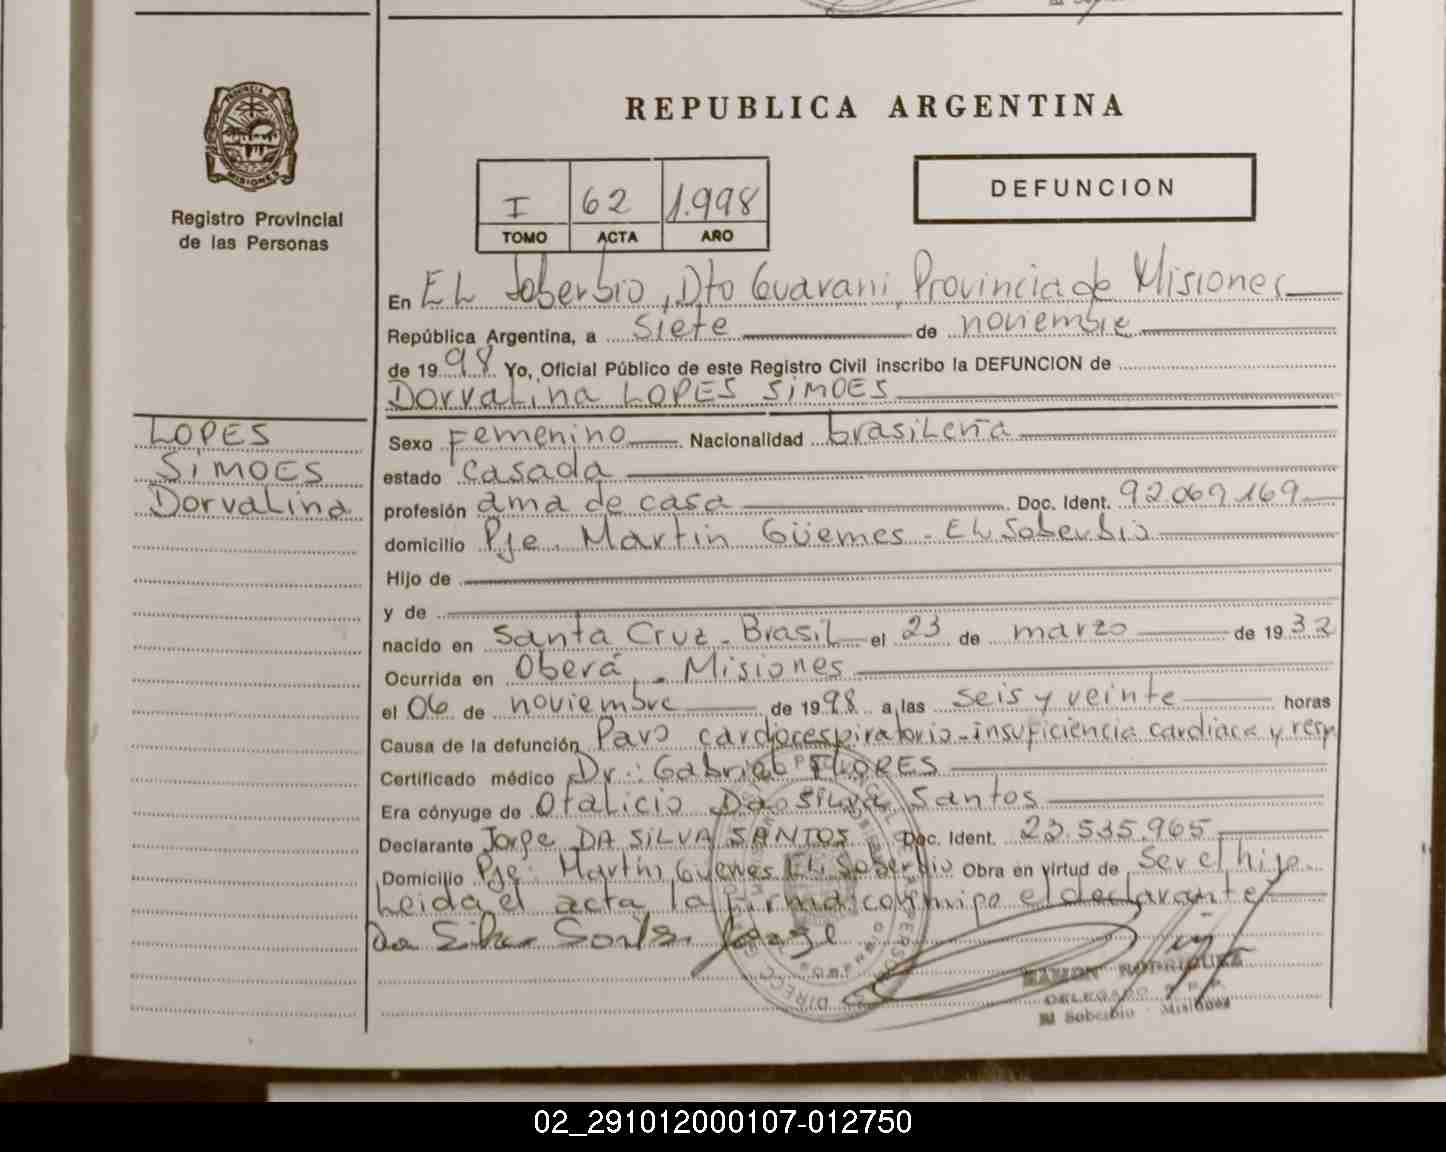 REPUBLICA ARGENTINA
PROVINCIA DE
MISIONES
Registro Provincial
de las Personas
I 62 1.998
TOMO ACTA AÑO
DEFUNCION
En EL Soberbio, Dto Guarani, Provincia de Misiones
República Argentina, a siete de noviembre
de 1998 Yo, Oficial Público de este Registro Civil inscribo la DEFUNCION de
Dorvalina LOPES SIMOES
LOPES
SIMOES
Dorvalina
Sexo Femenino Nacionalidad brasileña
estado casada
profesión ama de casa Doc. Ident. 92.069.169
domicilio Pje. Martin Güemes - EL Soberbio
Hijo de
y de
nacido en Santa Cruz - Brasil el 23 de marzo de 1932
Ocurrida en Oberá - Misiones
el 06 de noviembre de 1998 a las seis y veinte horas
Causa de la defunción Paro cardiorespiratorio - insuficiencia cardiaca y resp
Certificado médico Dr. Gabriel FLORES
Era cónyuge de Otalicio Da Silva Santos
Declarante Jorge DA SILVA SANTOS Doc. Ident. 23.535.965
Domicilio Pje. Martin Güemes EL Soberbio Obra en virtud de ser el hijo.
Leida el acta la firma conmigo el declarante
Da Silva Santos Jorge
RAMON RODRIGUEZ
DELEGADO R.P.P.
El Soberbio - Misiones
02_291012000107-012750